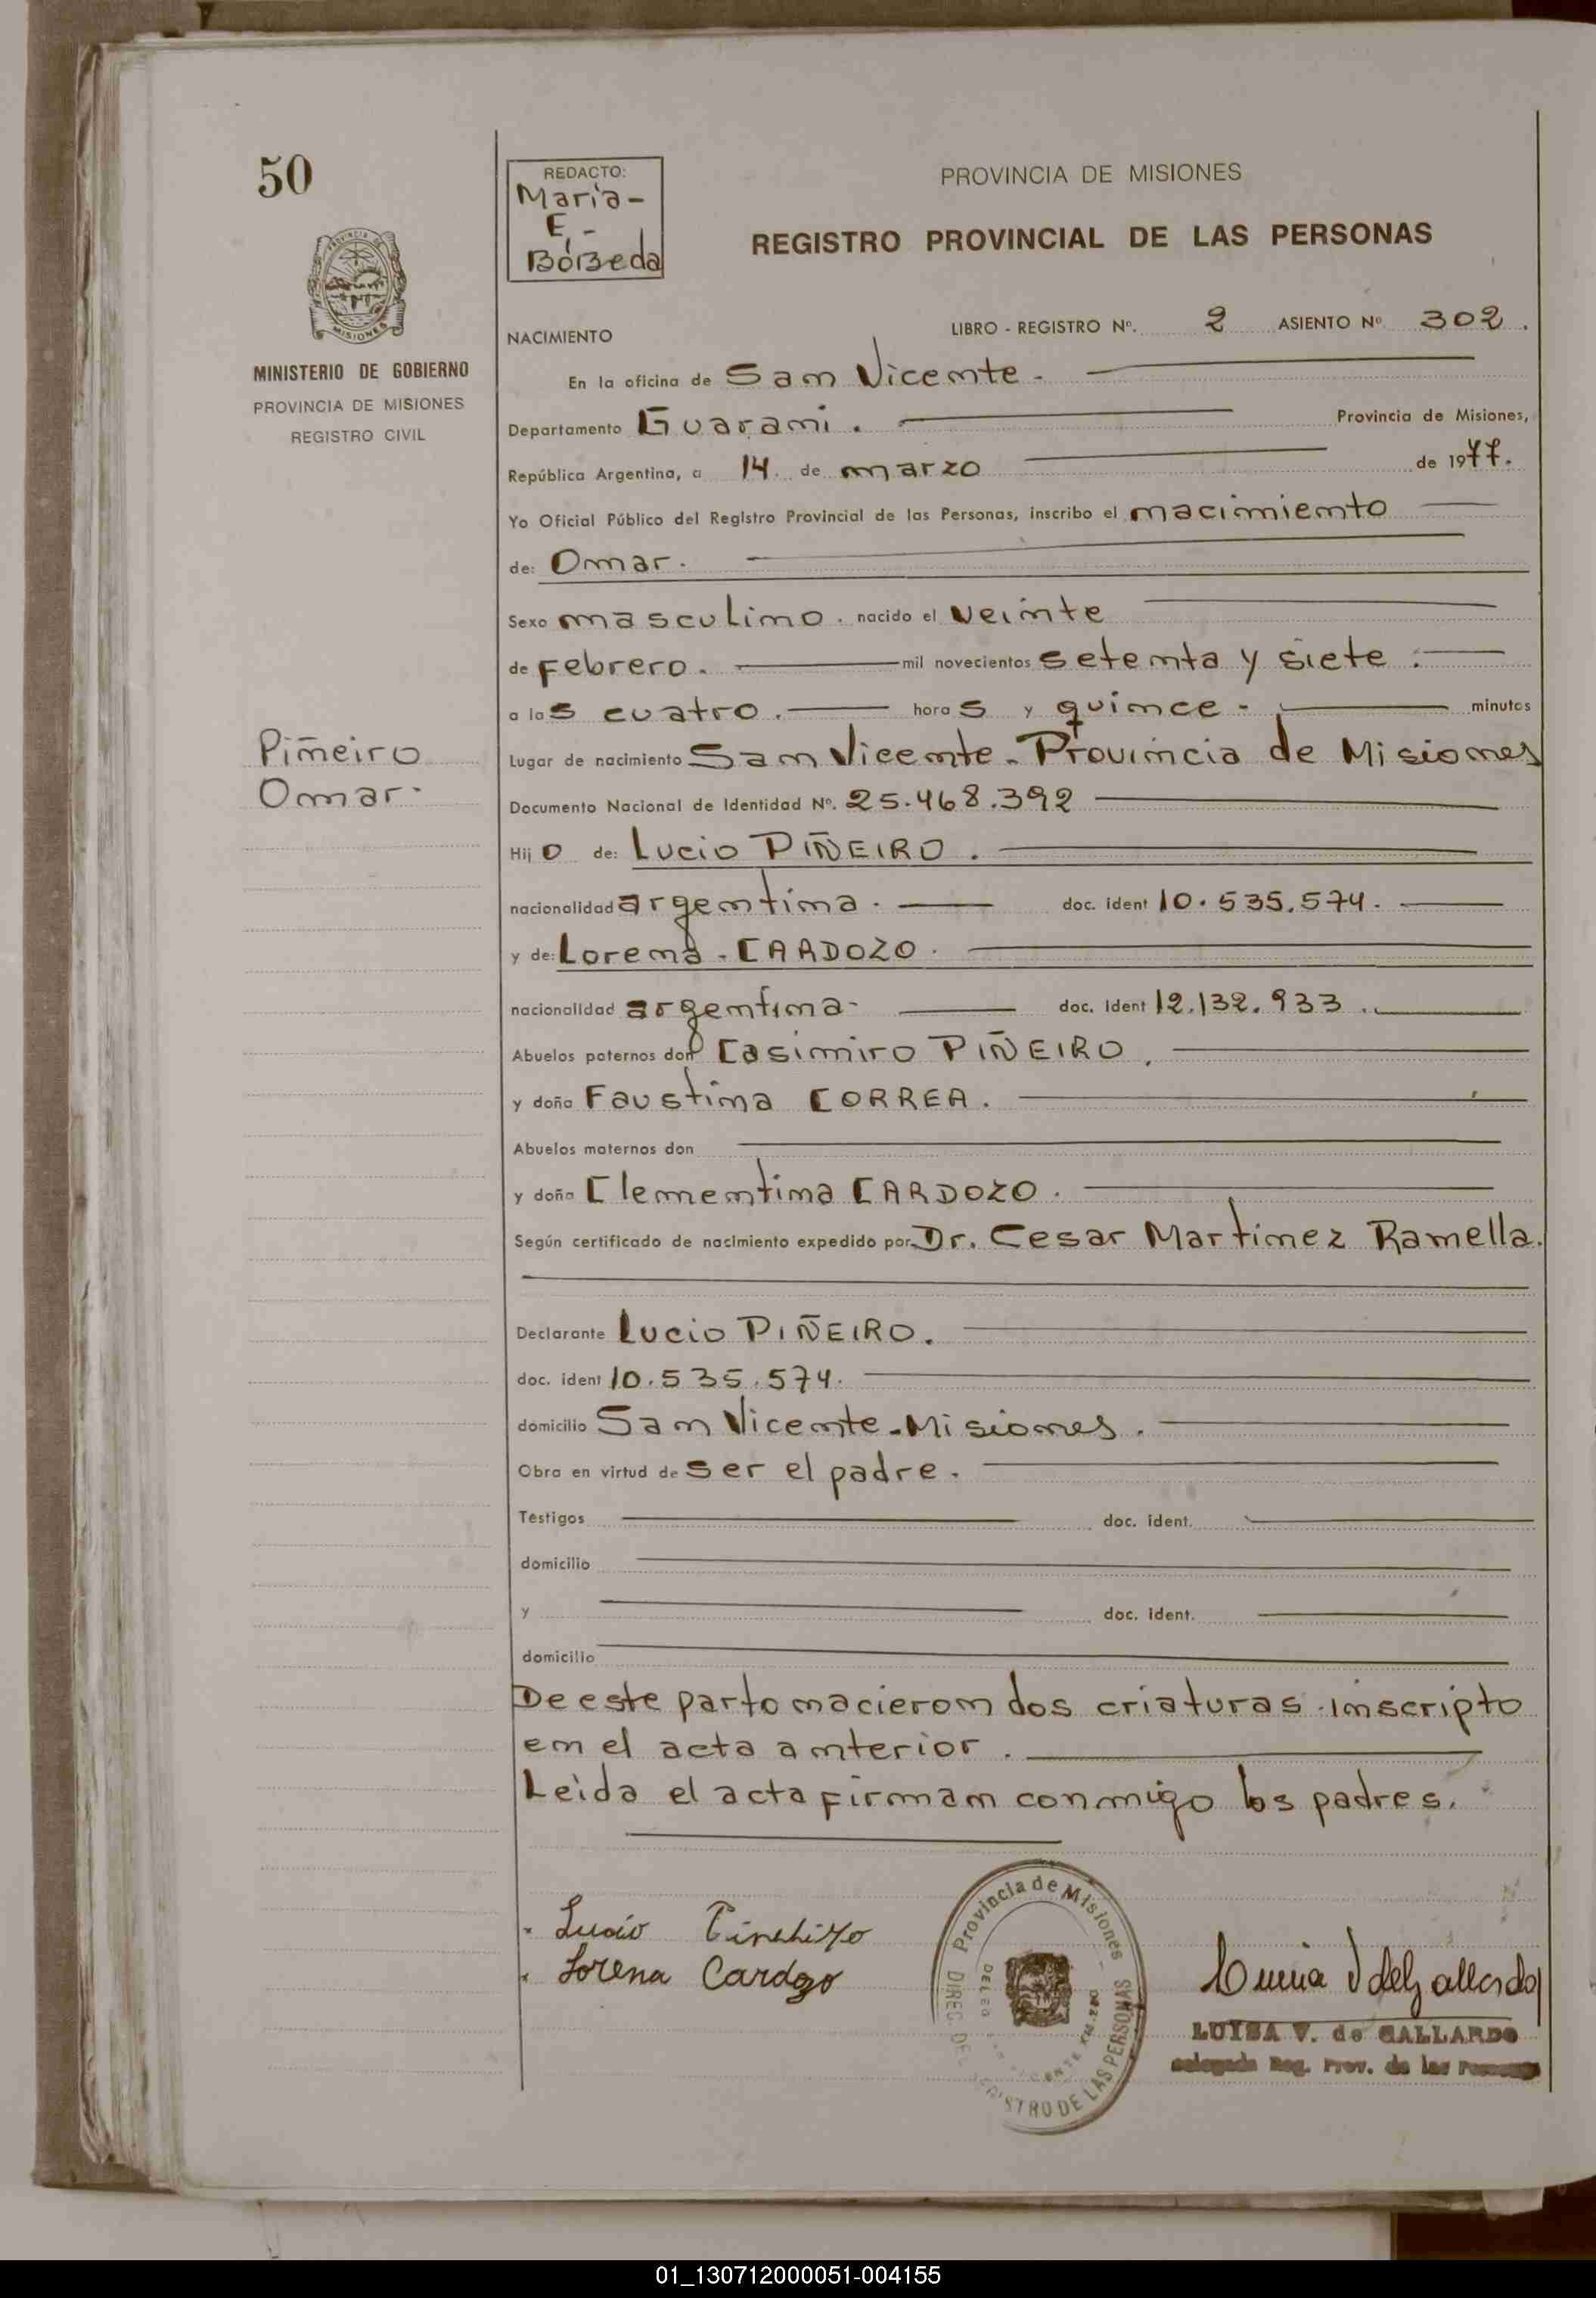 50
REDACTO:
Maria-
E,-
Bóbeda
PROVINCIA DE MISIONES
REGISTRO PROVINCIAL DE LAS PERSONAS
PROVINCIA DE
MISIONES
MINISTERIO DE GOBIERNO
PROVINCIA DE MISIONES
REGISTRO CIVIL
NACIMIENTO
LIBRO - REGISTRO Nº. 2 ASIENTO Nº 302.
En la oficina de San Vicente.
Departamento Guarani. Provincia de Misiones,
República Argentina, a 14. de marzo de 1977.
Yo Oficial Público del Registro Provincial de las Personas, inscribo el nacimiento
de: Omar.
Sexo masculino. nacido el veinte
de Febrero. mil novecientos setenta y siete.
a las cuatro. horas y quince - minutos
Piñeiro
Omar.
Lugar de nacimiento San Vicente. Provincia de Misiones
Documento Nacional de Identidad Nº. 25.468.392
Hijo de: Lucio PIÑEIRO.
nacionalidad argentina. doc. ident 10.535.574.
y de: Lorena. CARDOZO.
nacionalidad argentina- doc. ident 12.132.933.
Abuelos paternos don Casimiro PIÑEIRO.
y doña Faustina CORREA.
Abuelos maternos don
y doña Clementina CARDOZO.
Según certificado de nacimiento expedido por Dr. Cesar Martinez Ramella.
Declarante Lucio PIÑEIRO.
doc. ident 10.535.574.
domicilio San Vicente-Misiones.
Obra en virtud de ser el padre.
Testigos doc. ident.
domicilio
y doc. ident.
domicilio
De este parto nacieron dos criaturas inscripto
en el acta anterior.
Leida el acta firman conmigo los padres.
Lucio
Lorena Cardozo
Provincia de Misiones
DIREC. DEL REGISTRO DE LAS PERSONAS
LUISA V. de GALLARDO
Delegada Reg. Prov. de las Personas
01_130712000051-004155